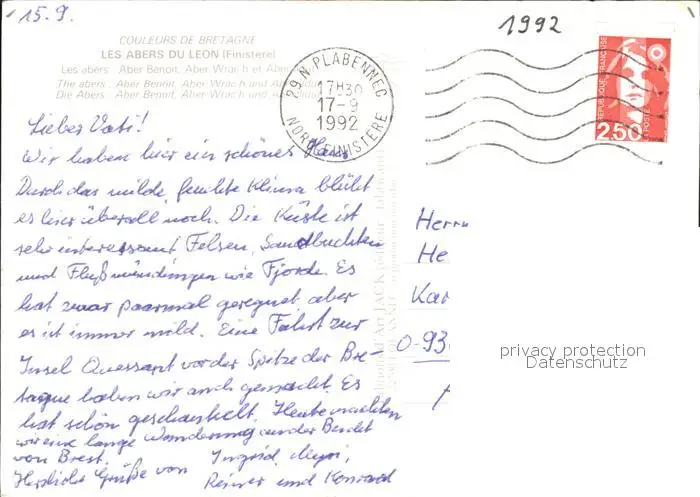 15.9.
1992
COULEURS DE BRETAGNE
LES ABERS DU LEON (Finistère)
Les abers : Aber Benoit, Aber Wrac'h et Aber
The abers : Aber Benoit, Aber Wrac'h and
Die Abers : Aber Benoit, Aber Wrac'h und
29 N PLABENNEC
17H30
17-9
1992
NORD FINISTERE
REPUBLIQUE FRANÇAISE
2,50
LA POSTE
Lieber Vati!
Wir haben hier ein schönes Haus
Durch das milde, feuchte Klima blüht
es hier überall noch. Die Küste ist
sehr interessant Felsen, Sandbuchten
und Flußmündungen wie Fjorde. Es
hat zwar paarmal geregnet aber
es ist immer mild. Eine Fahrt zur
Insel Quessant vor der Spitze der Bre-
tagne haben wir auch gemacht. Es
hat schön geschaukelt. Heute machten
wir eine lange Wanderung an der Bucht
von Brest.
Herzliche Grüße von Ingrid,
Reiner und Konrad
Herrn
He
Kar
0-93
privacy protection
Datenschutz